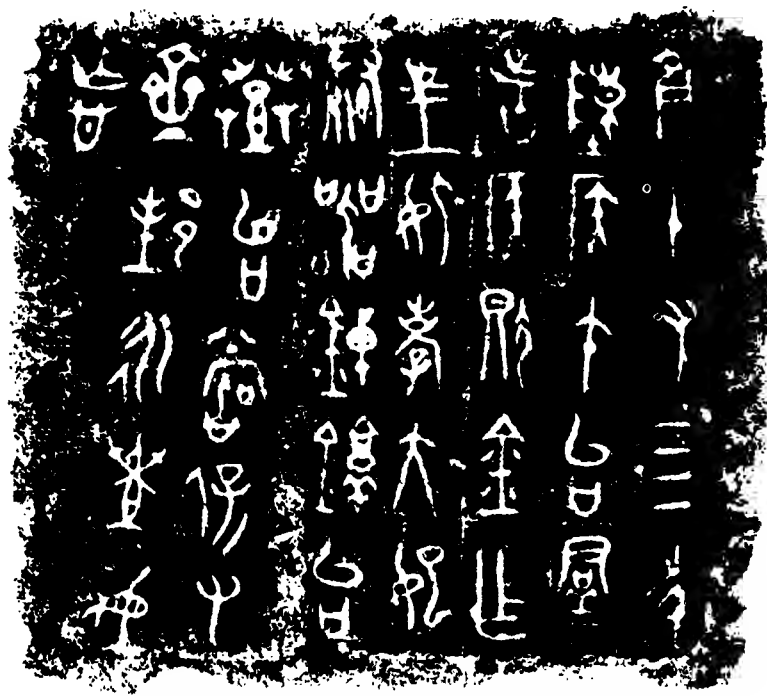 隹十又四年
陳侯午台群
者侯獻金乍
皇妣孝大妃
祭器𨱔錞台
登台嘗保又
齊邦永世毋
忘